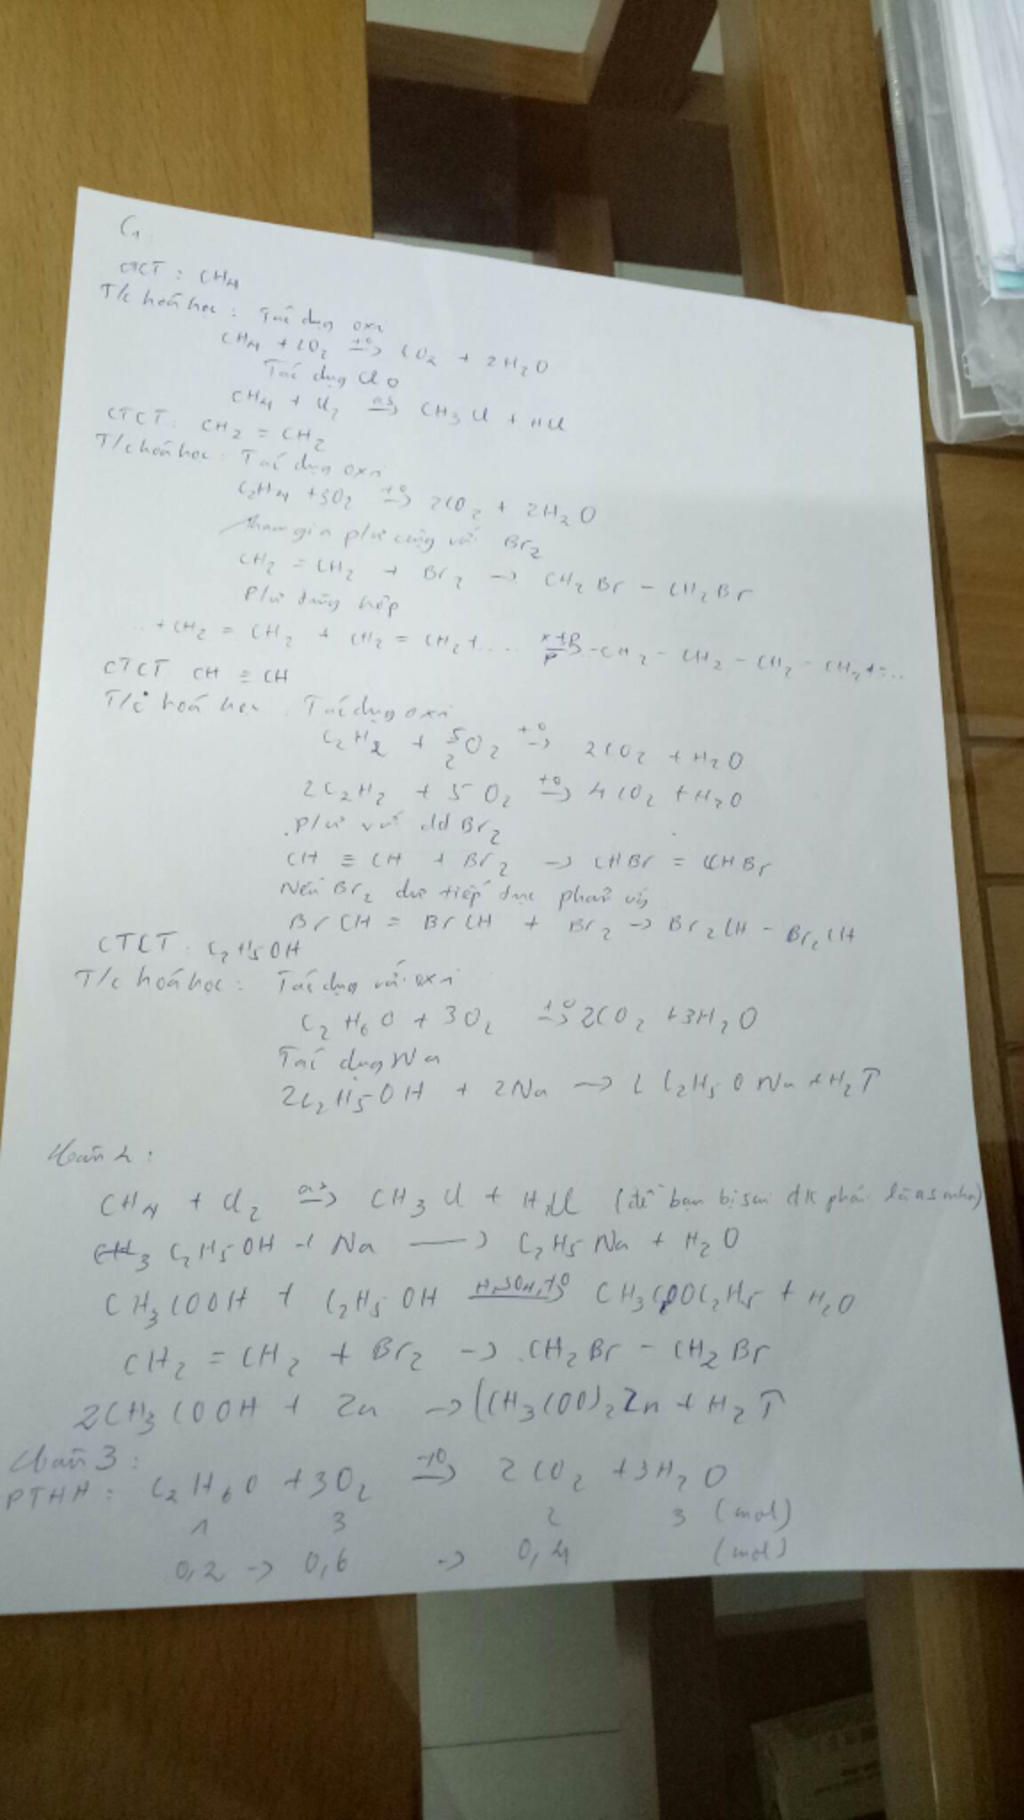 C1
CTCT : CH4
T/c hoá học : Tác dụng oxi
CH4 + 2O2 t0→ CO2 + 2H2O
Tác dụng Clo
CH4 + Cl2 as→ CH3Cl + HCl
CTCT : CH2 = CH2
T/c hoá học : Tác dụng oxi
C2H4 + 3O2 t0→ 2CO2 + 2H2O
tham gia p/ư cộng với Br2
CH2 = CH2 + Br2 → CH2Br - CH2Br
P/ư trùng hợp
.. + CH2 = CH2 + CH2 = CH2 + .... xt→ p - CH2 - CH2 - CH2 - CH2 + ...
CTCT CH ≡ CH
T/c hoá học . Tác dụng oxi
C2H2 + 5/2 O2 t0→ 2CO2 + H2O
2C2H2 + 5O2 t0→ 4CO2 + H2O
P/ư với dd Br2
CH ≡ CH + Br2 → CHBr = CHBr
Nếu Br2 dư tiếp tục phản ứng
BrCH = BrCH + Br2 → Br2CH - Br2CH
CTCT : C2H5OH
T/c hoá học : Tác dụng với oxi
C2H6O + 3O2 t0→ 2CO2 + 3H2O
Tác dụng Na
2C2H5OH + 2Na → 2C2H5ONa + H2↑
Câu 2 :
CH4 + Cl2 as→ CH3Cl + HCl (đề bạn bị sai đk phải là as)
C2H5OH + Na → C2H5Na + H2O
CH3COOH + C2H5OH H2SO4, t0→ CH3COOC2H5 + H2O
CH2 = CH2 + Br2 → CH2Br - CH2Br
2CH3COOH + Zn → (CH3COO)2Zn + H2↑
Câu 3 :
PTHH : C2H6O + 3O2 t0→ 2CO2 + 3H2O
1 3 2 3 (mol)
0,2 → 0,6 → 0,4 (mol)